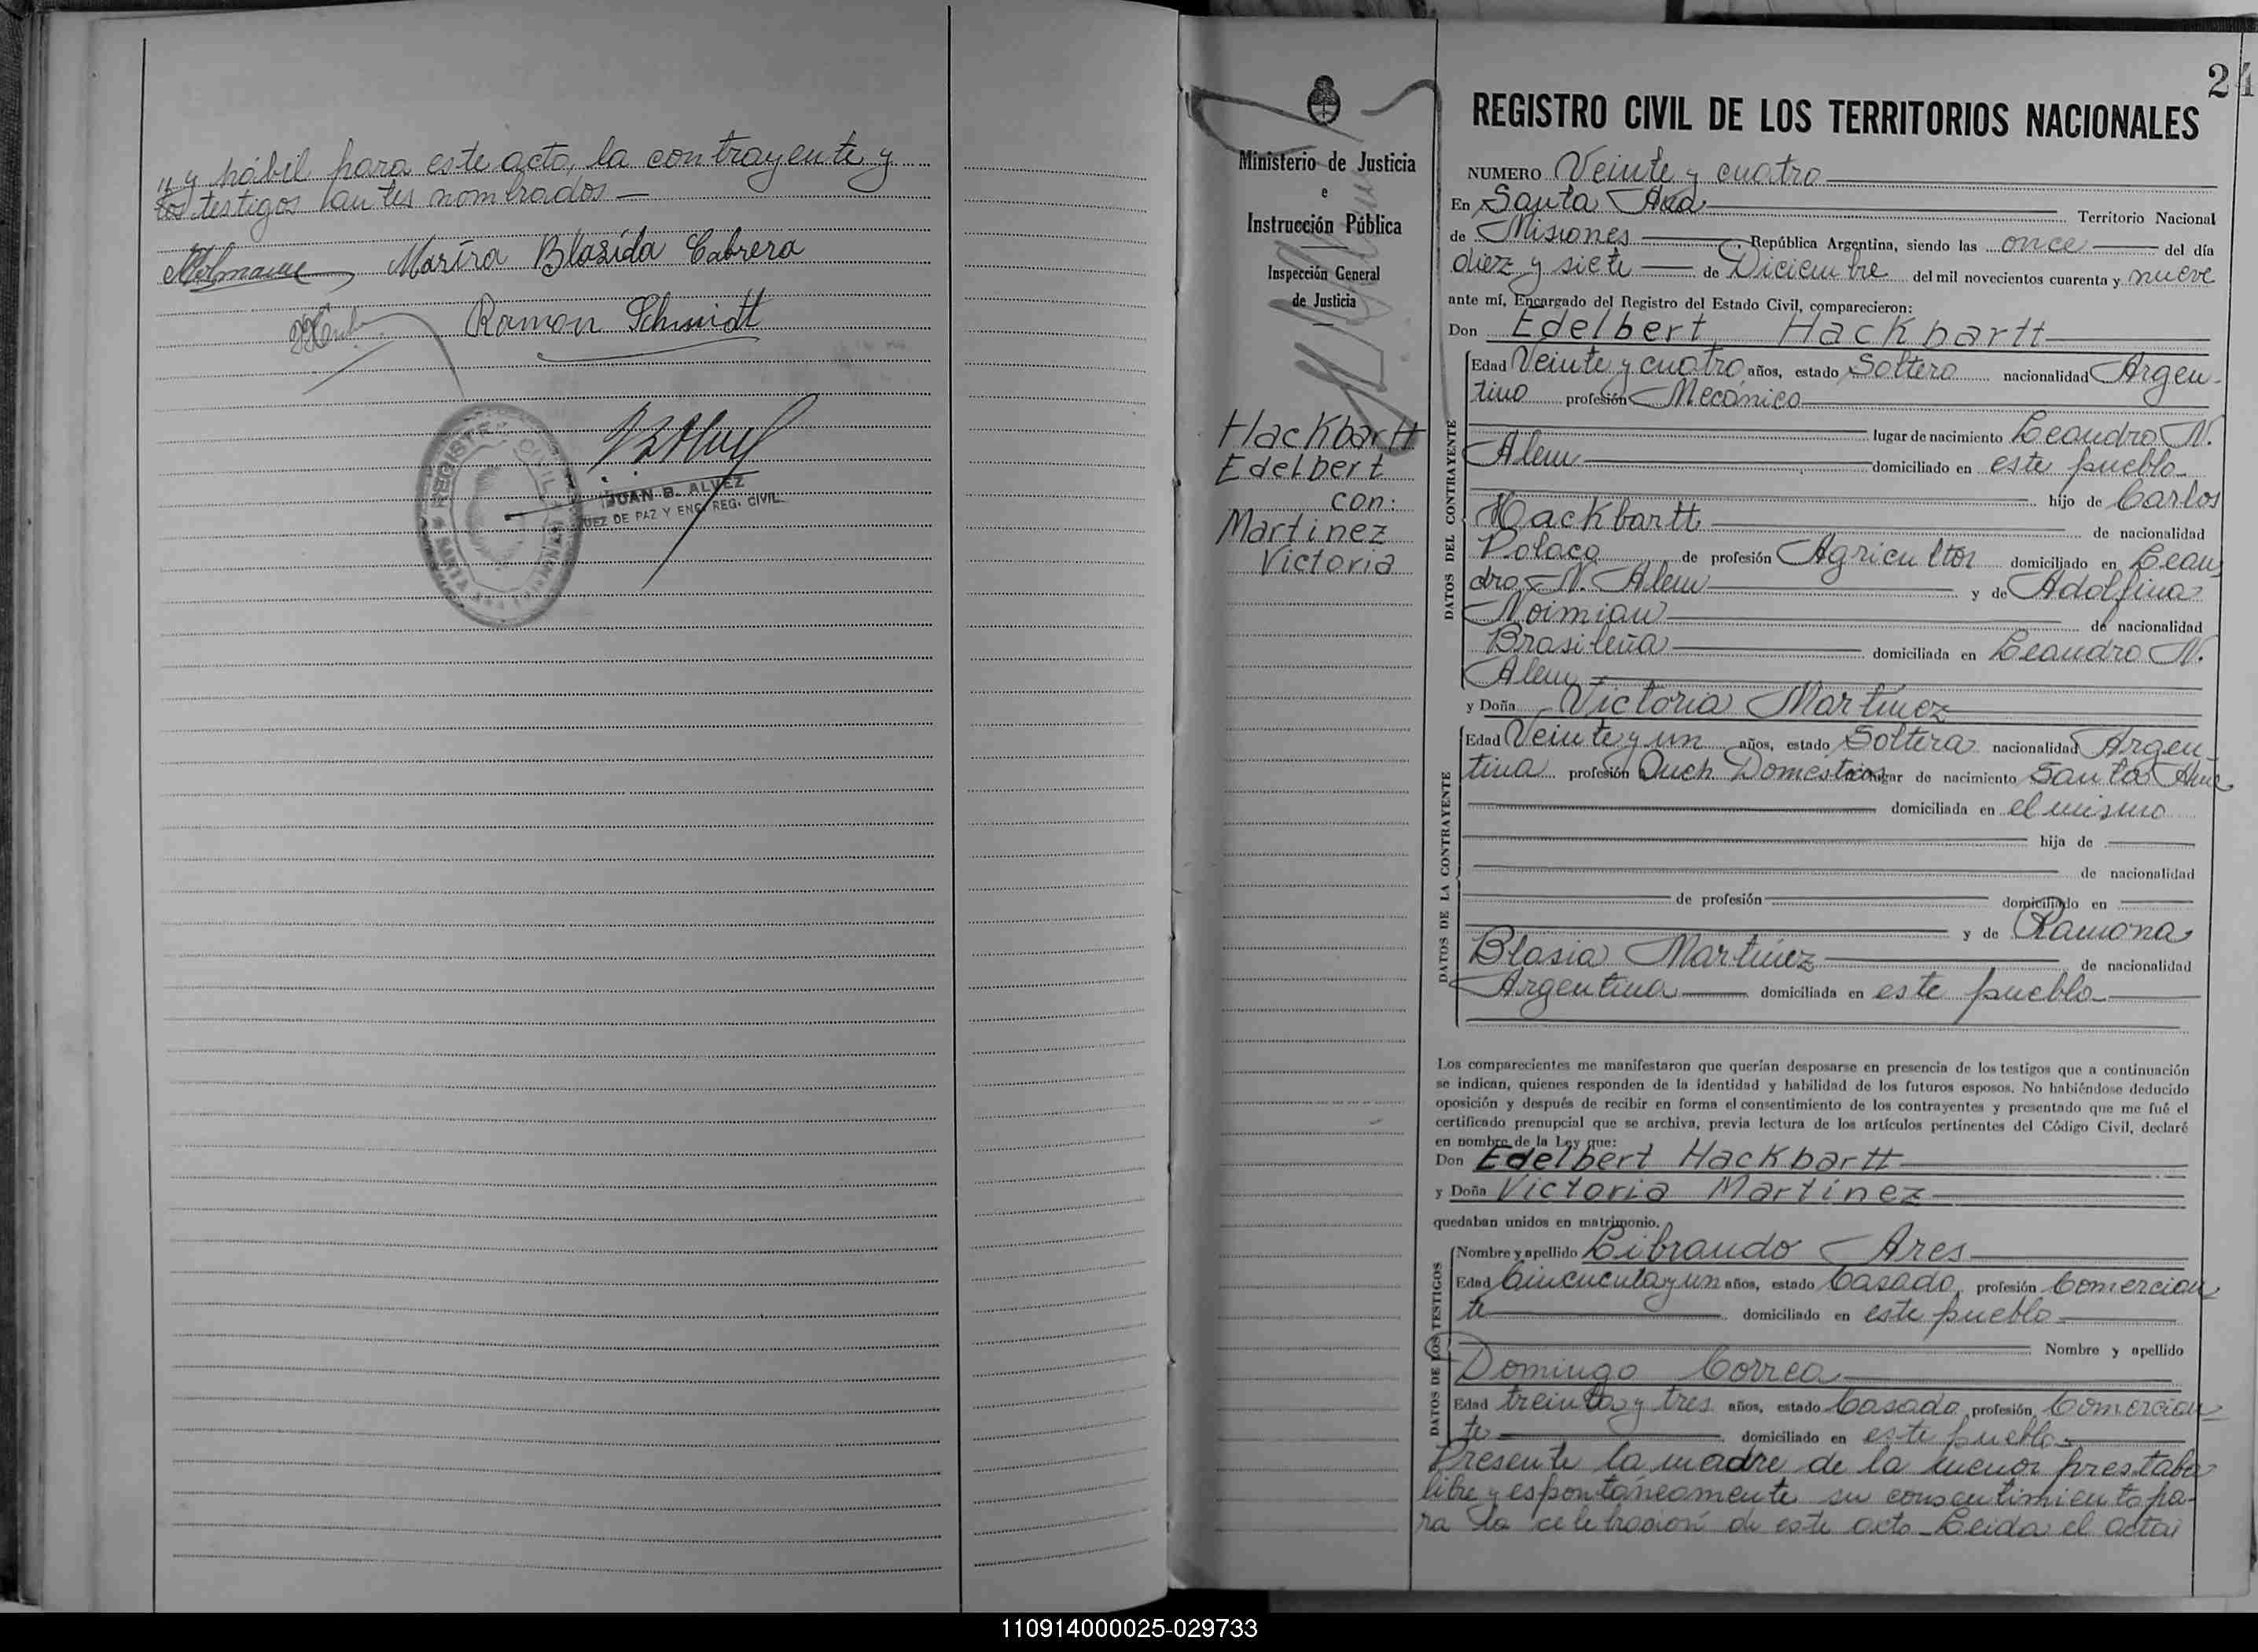 " y hábil para este acto, la contrayente y
los testigos antes nombrados —
Marira Blasida Cabrera
Ramon Schmidt
REGISTRO CIVIL
JUAN B. ALVEZ
JUEZ DE PAZ Y ENC. REG. CIVIL
24
Ministerio de Justicia
e
Instrucción Pública
Inspección General
de Justicia
HacKbartt
Edelbert
con:
Martinez
Victoria
REGISTRO CIVIL DE LOS TERRITORIOS NACIONALES
NUMERO Veinte y cuatro
En Santa Ana Territorio Nacional
de Misiones, República Argentina, siendo las once del día
diez y siete de Diciembre del mil novecientos cuarenta y nueve
ante mí, Encargado del Registro del Estado Civil, comparecieron:
Don Edelbert HacKbartt
DATOS DEL CONTRAYENTE
Edad Veinte y cuatro años, estado Soltero nacionalidad Argen-
tino profesión Mecánico
lugar de nacimiento Leandro N.
Alem domiciliado en este pueblo
hijo de Carlos
Hackbartt de nacionalidad
Polaco de profesión Agricultor domiciliado en Lean
dro N. Alem y de Adolfina
Noimian de nacionalidad
Brasileña domiciliada en Leandro N.
Alem
y Doña Victoria Martínez
DATOS DE LA CONTRAYENTE
Edad Veinte y un años, estado Soltera nacionalidad Argen-
tina profesión Queh. Domésticos lugar de nacimiento Santa Ana
domiciliada en el mismo
hija de
de nacionalidad
de profesión domiciliado en
y de Ramona
Blasia Martínez de nacionalidad
Argentina domiciliada en este pueblo
Los comparecientes me manifestaron que querían desposarse en presencia de los testigos que a continuación
se indican, quienes responden de la identidad y habilidad de los futuros esposos. No habiéndose deducido
oposición y después de recibir en forma el consentimiento de los contrayentes y presentado que me fué el
certificado prenupcial que se archiva, previa lectura de los artículos pertinentes del Código Civil, declaré
en nombre de la Ley que:
Don Edelbert HacKbartt
y Doña Victoria Martinez
quedaban unidos en matrimonio.
DATOS DE LOS TESTIGOS
Nombre y apellido Librando Ares
Edad Cincuenta y un años, estado Casado profesión Comercian
te domiciliado en este pueblo
Nombre y apellido
Domingo Correa
Edad treinta y tres años, estado Casado profesión Comercian
te domiciliado en este pueblo
Presente la madre de la menor prestaba
libre y espontáneamente su consentimiento pa-
ra la celebración de este acto Leida el acta
110914000025-029733